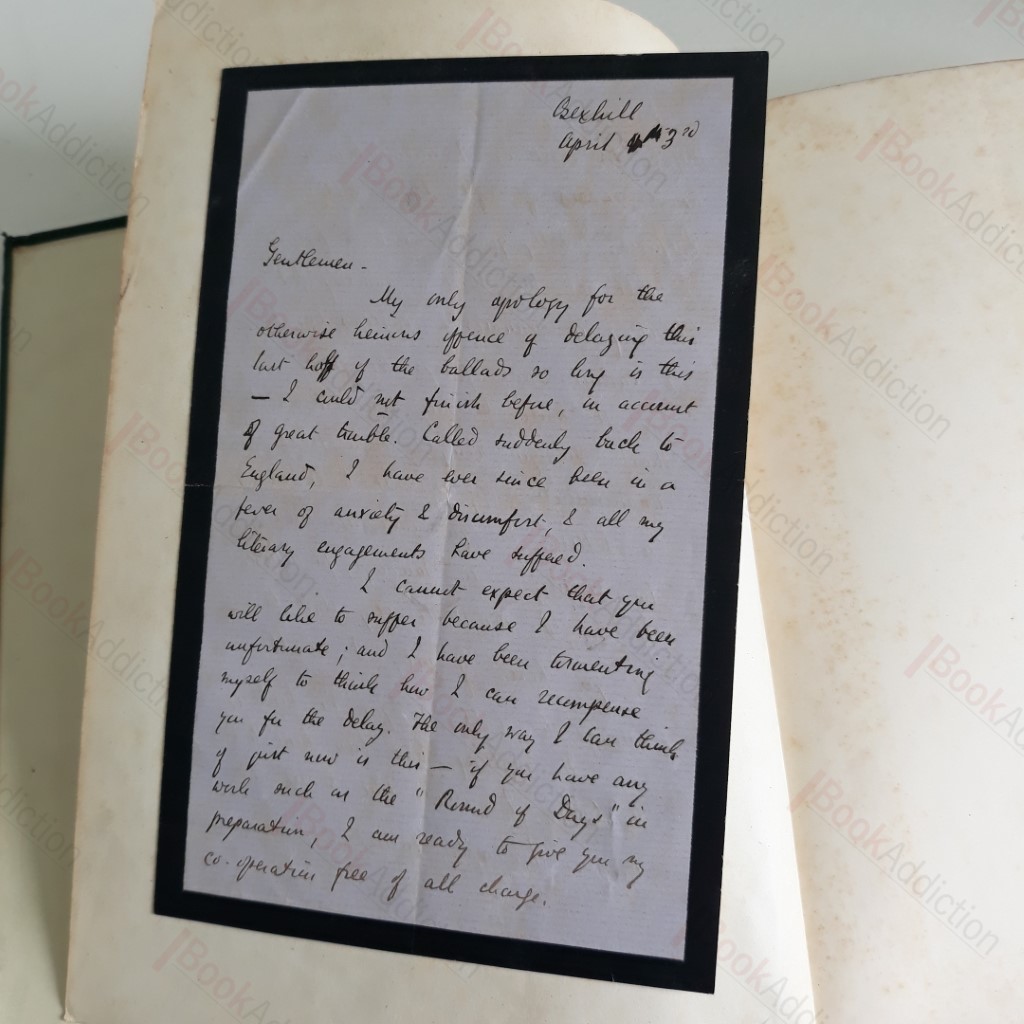 Bexhill
April 3rd
Gentlemen -
My only apology for the
otherwise heinous offence of delaying this
last half of the ballads so long is this
— I could not finish before, on account
of great trouble. Called suddenly back to
England, I have ever since been in a
fever of anxiety & discomfort, & all my
literary engagements have suffered.
I cannot expect that you
will like to suffer because I have been
unfortunate; and I have been tormenting
myself to think how I can recompense
you for the delay. The only way I can think
of just now is this — if you have any
work such as the "Round of Days" in
preparation, I am ready to give you my
co-operation free of all charge.
BookAddiction